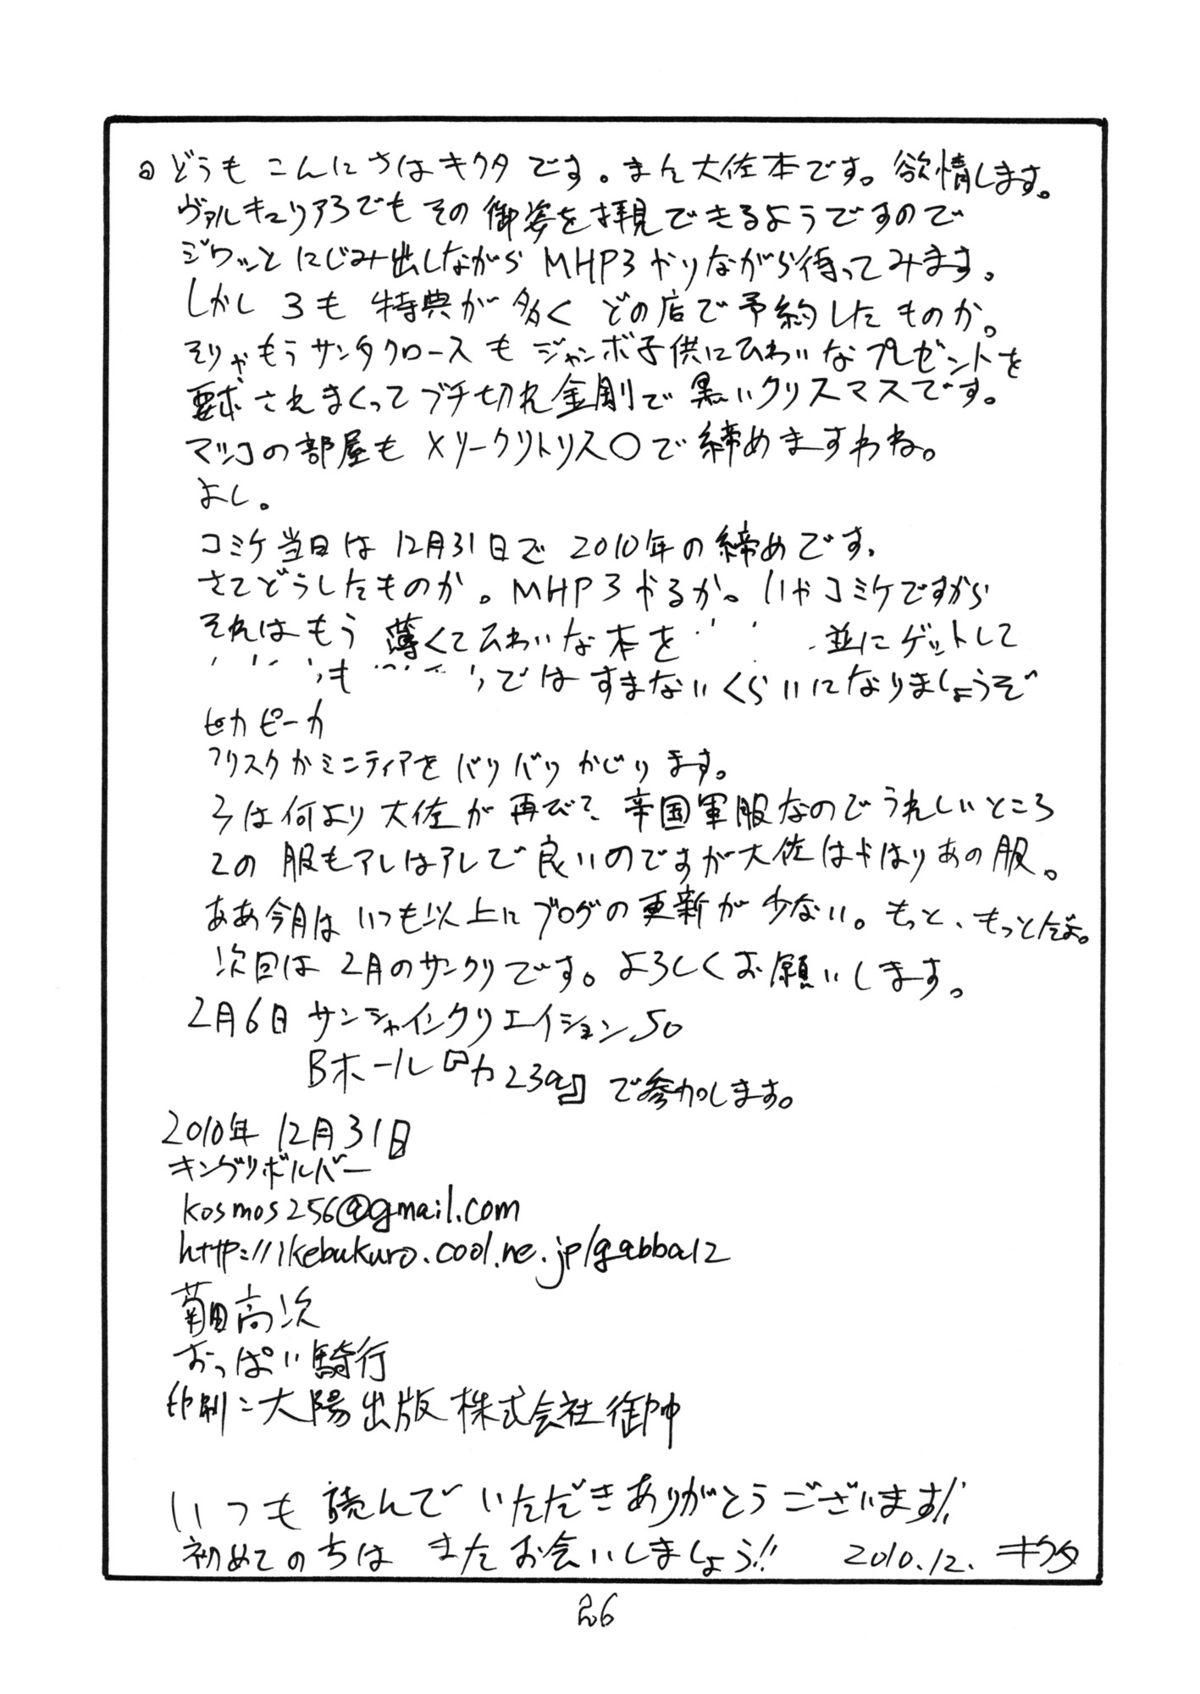 どうも こんにちはキクタです。まん大佐本です。欲情します。
ヴァルキュリア3でもその御姿を拝見できるようですので
ジワッとにじみ出しながらMHP3やりながら待ってみます。
しかし3も特典が多くどの店で予約したものか。
そりゃもうサンタクロースもジャンボ子供にひわいなプレゼントを
要求されまくってブチ切れ金剛で黒いクリスマスです。
マツコの部屋もメリークリトリス〇で締めますわね。
よし。
コミケ当日は12月31日で2010年の締めです。
さてどうしたものか。MHP3やるか。いやコミケですから
それはもう薄くてひわいな本を 並にゲットして
も ではすまないくらいになりましょうぞ
ピカピーカ
フリスクかミンティアをバリバリかじります。
3は何より大佐が再びて 帝国軍服なのでうれしいところ
2の服もアレはアレで良いのですが大佐はやはりあの服。
ああ今月はいつも以上にブログの更新が少ない。もっと、もっとだよ。
次回は2月のサンクリです。よろしくお願いします。
2月6日 サンシャインクリエイション50
Bホール『カ23a』で参加します。
2010年12月31日
キングリボルバー
kosmos256@gmail.com
http://ikebukuro.cool.ne.jp/gabba12
菊田高次
おっぱい騎行
印刷:大陽出版株式会社御中
いつも読んでいただきありがとうございます!!
初めてのちは またお会いしましょう!! 2010.12. キクタ
26